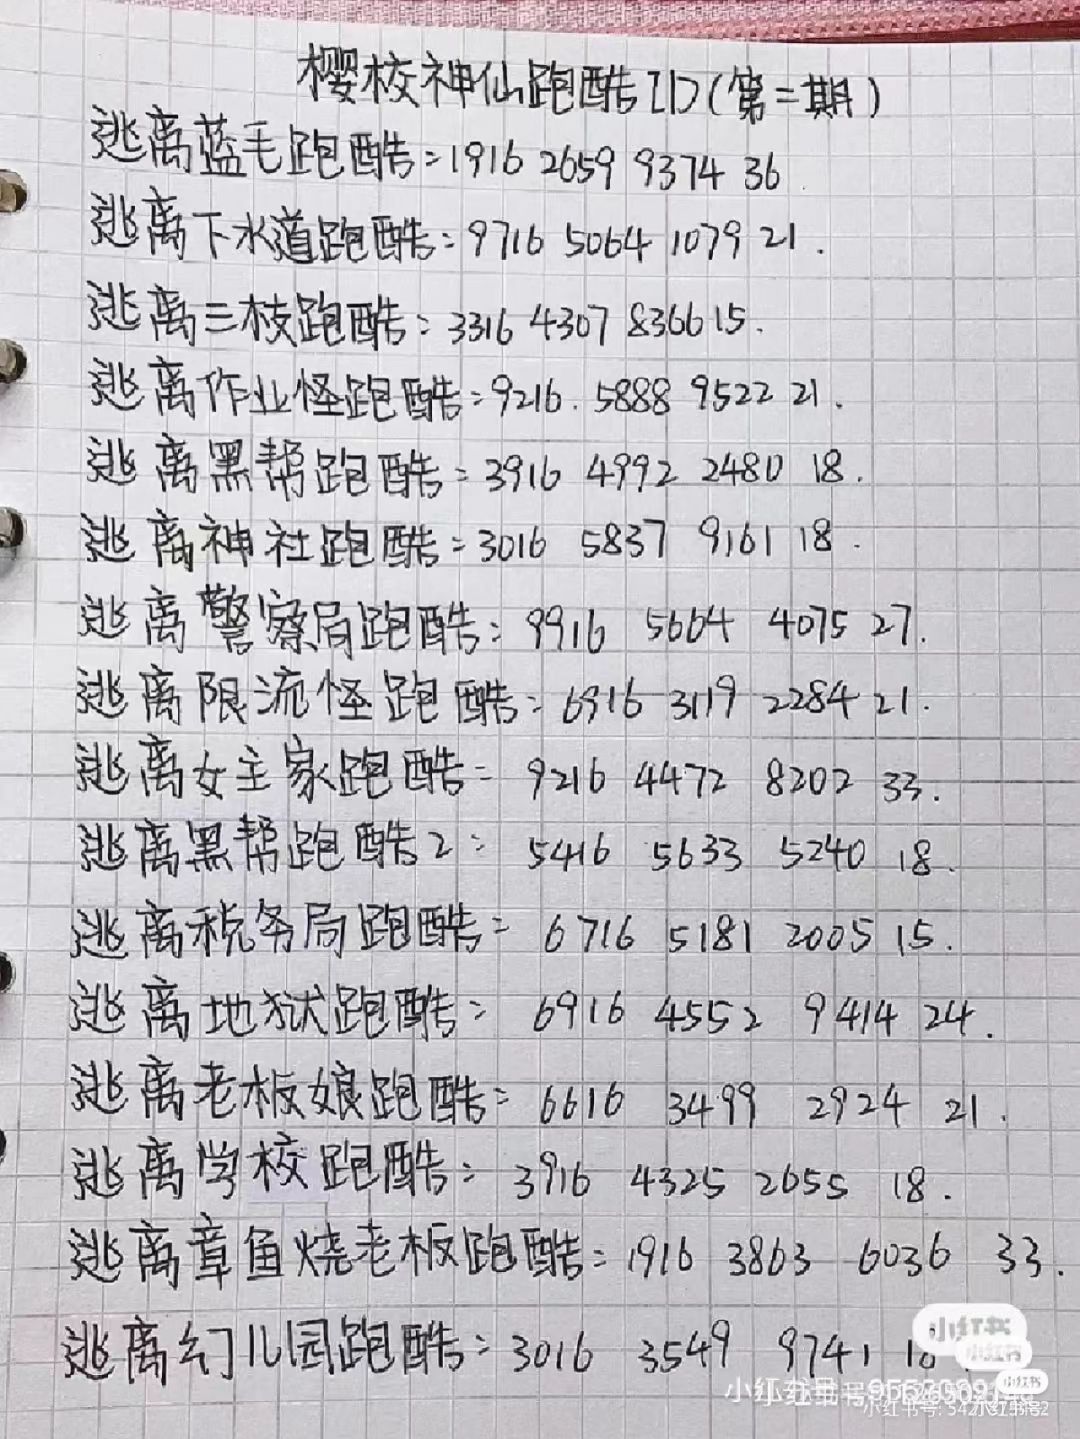 樱校神仙跑酷ID(第二期)
逃离蓝毛跑酷:1916 2659 9374 36
逃离下水道跑酷:9716 5064 1079 21.
逃离三枝跑酷:3316 4307 8366 15.
逃离作业怪跑酷:9216.5888 9522 21.
逃离黑帮跑酷:3916 4992 2480 18.
逃离神社跑酷:3016 5837 9161 18.
逃离警察局跑酷:9916 5664 4075 27.
逃离限流怪跑酷:6916 3119 2284 21.
逃离女主家跑酷:9216 4472 8202 33.
逃离黑帮跑酷2:5416 5633 5240 18.
逃离税务局跑酷:6716 5181 2005 15.
逃离地狱跑酷:6916 4552 9414 24.
逃离老板娘跑酷:6616 3499 2924 21.
逃离学校跑酷:3916 4325 2655 18.
逃离章鱼烧老板跑酷:1916 3863 6036 33.
逃离幻儿园跑酷:3016 3549 9741 18
小红书
小红书
小红书
小红书号: